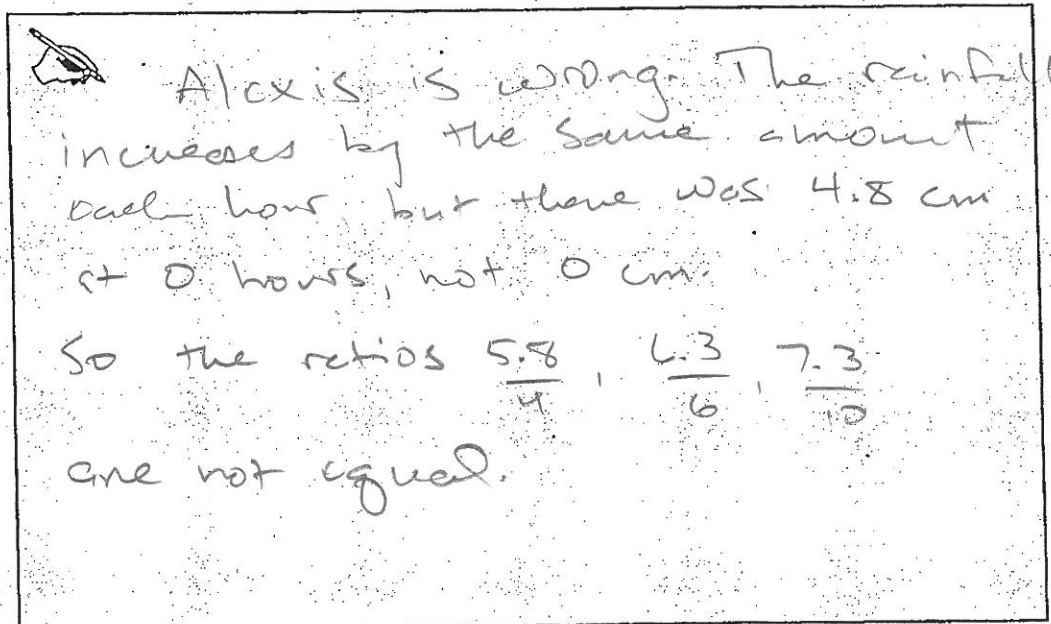 Alexis is wrong. The rainfall
increases by the same amount
each hour, but there was 4.8 cm
at 0 hours, not 0 cm.
So the ratios 5.8/4, 6.3/6, 7.3/10
are not equal.